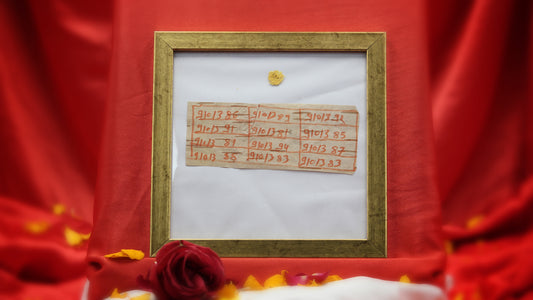 91013 86 91013 89 91013 92
91013 91 91013 81 91013 85
91013 81 91013 94 91013 87
91013 85 91013 83 91013 83